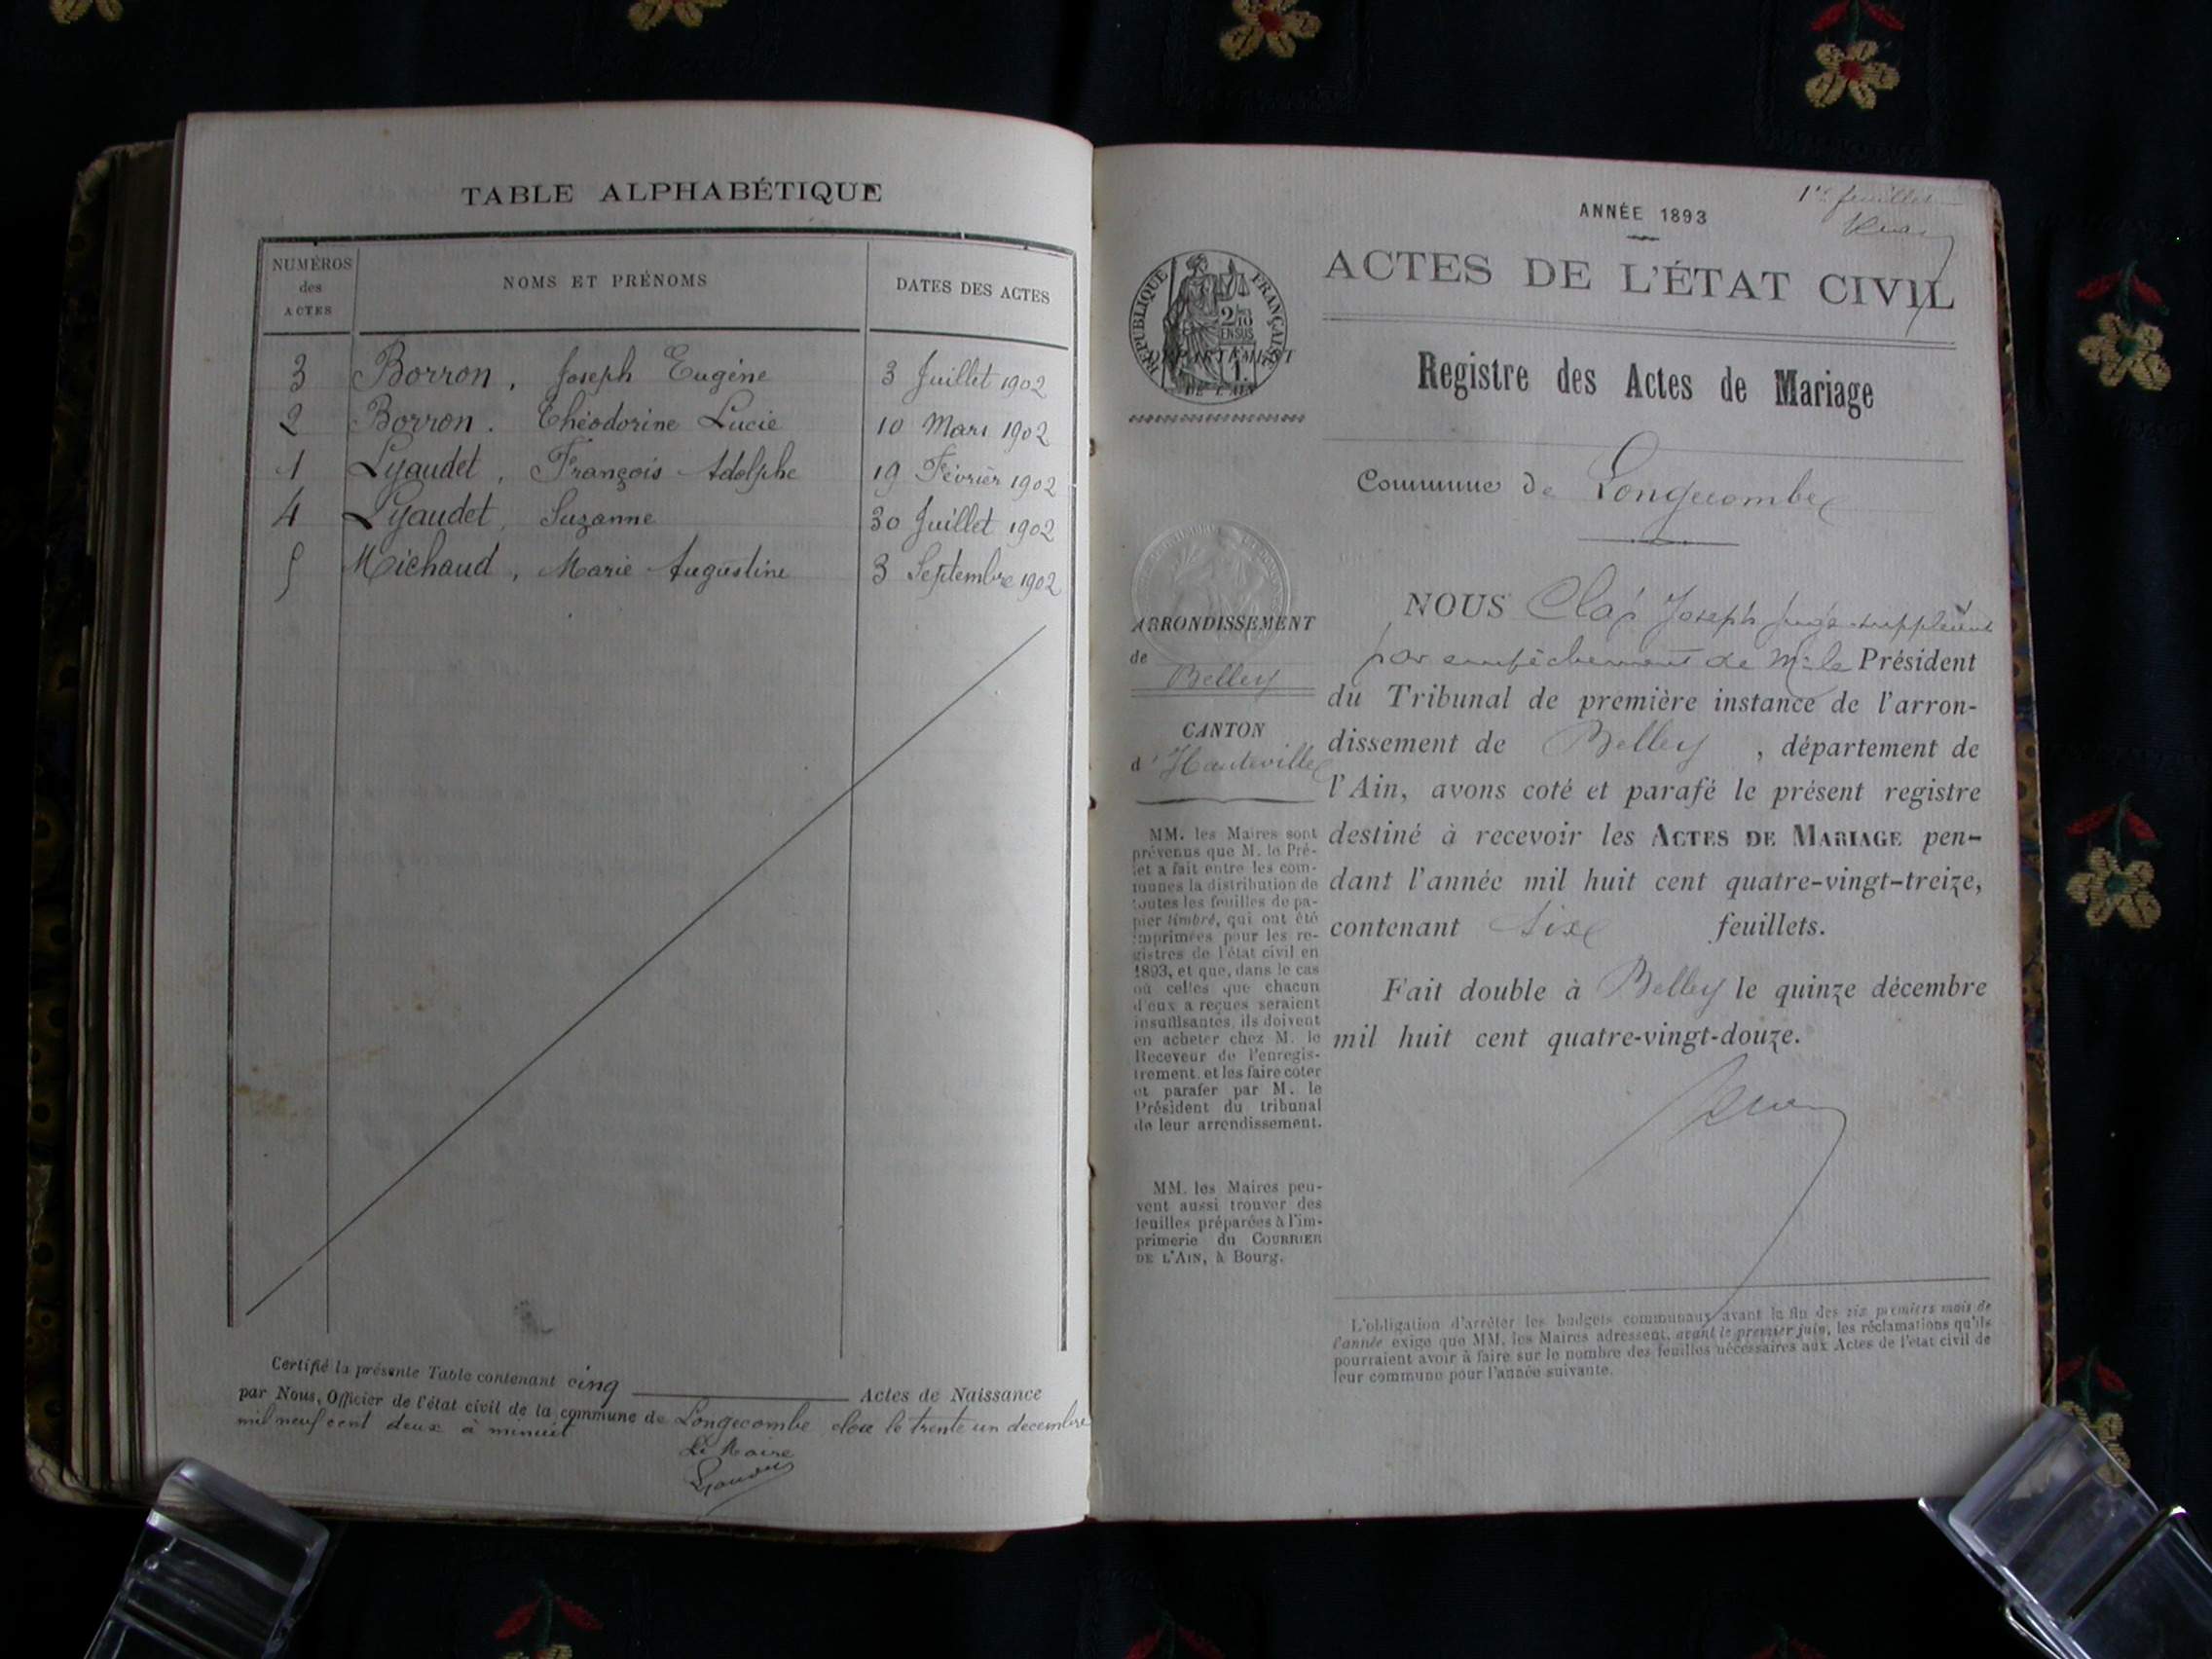 TABLE ALPHABÉTIQUE
NUMÉROS
des
ACTES
NOMS ET PRÉNOMS
DATES DES ACTES
3 Borron, Joseph Eugène 3 Juillet 1902
2 Borron. Théodorine Lucie 10 Mars 1902
1 Lyaudet, François Adolphe 19 Février 1902
4 Lyaudet, Suzanne 30 Juillet 1902
5 Michaud, Marie Augustine 3 Septembre 1902
Certifié la présente Table contenant cinq Actes de Naissance
par Nous, Officier de l'état civil de la commune de Longecombe clou le trente un decembre
mil neuf cent deux à minuit
Le Maire
1er feuillet
ANNÉE 1893
ACTES DE L'ÉTAT CIVIL
RÉPUBLIQUE FRANÇAISE
2/10
EN SUS
DÉPARTEMENT
1.
DE L'AIN
Registre des Actes de Mariage
Commune de Longecombe
ARRONDISSEMENT
de
Belley
CANTON
d'Hauteville
MM. les Maires sont
prévenus que M. le Pré-
fet a fait entre les com-
munes la distribution de
toutes les feuilles de pa-
pier timbré, qui ont été
imprimées pour les re-
gistres de l'état civil en
1893, et que, dans le cas
où celles que chacun
d'eux a reçues seraient
insuffisantes, ils doivent
en acheter chez M. le
Receveur de l'enregis-
trement, et les faire coter
et parafer par M. le
Président du tribunal
de leur arrondissement.
MM. les Maires peu-
vent aussi trouver des
feuilles préparées à l'im-
primerie du COURRIER
DE L'AIN, à Bourg.
NOUS Joseph Juge suppléant
par empêchement de Mr le Président
du Tribunal de première instance de l'arron-
dissement de Belley, département de
l'Ain, avons coté et parafé le présent registre
destiné à recevoir les ACTES DE MARIAGE pen-
dant l'année mil huit cent quatre-vingt-treize,
contenant six feuillets.
Fait double à Belley le quinze décembre
mil huit cent quatre-vingt-douze.
L'obligation d'arrêter les budgets communaux avant la fin des six premiers mois de
l'année exige que MM. les Maires adressent, avant le premier juin, les réclamations qu'ils
pourraient avoir à faire sur le nombre des feuilles nécessaires aux Actes de l'état civil de
leur commune pour l'année suivante.